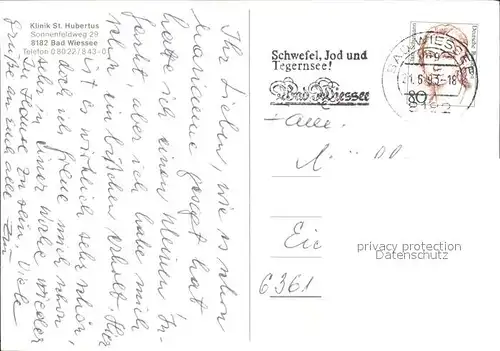 Klinik St. Hubertus
Sonnenfeldweg 29
8182 Bad Wiessee
Telefon 08022/843-0
Ihr Lieben, wie es schon
Marianne gesagt hat
hatte ich einen kleinen In-
farkt, aber ich habe mich
schon ein bißchen erholt. Hier
ist es wirklich sehr schön,
doch ich freue mich schon,
in einer Woche wieder
zu Hause zu sein. Viele
Grüße an euch alle
Schwefel, Jod und
Tegernsee!
Bad Wiessee
BAD WIESSEE
21.6.93-18
8182
80
Fam.
Eic
6361
privacy protection
Datenschutz